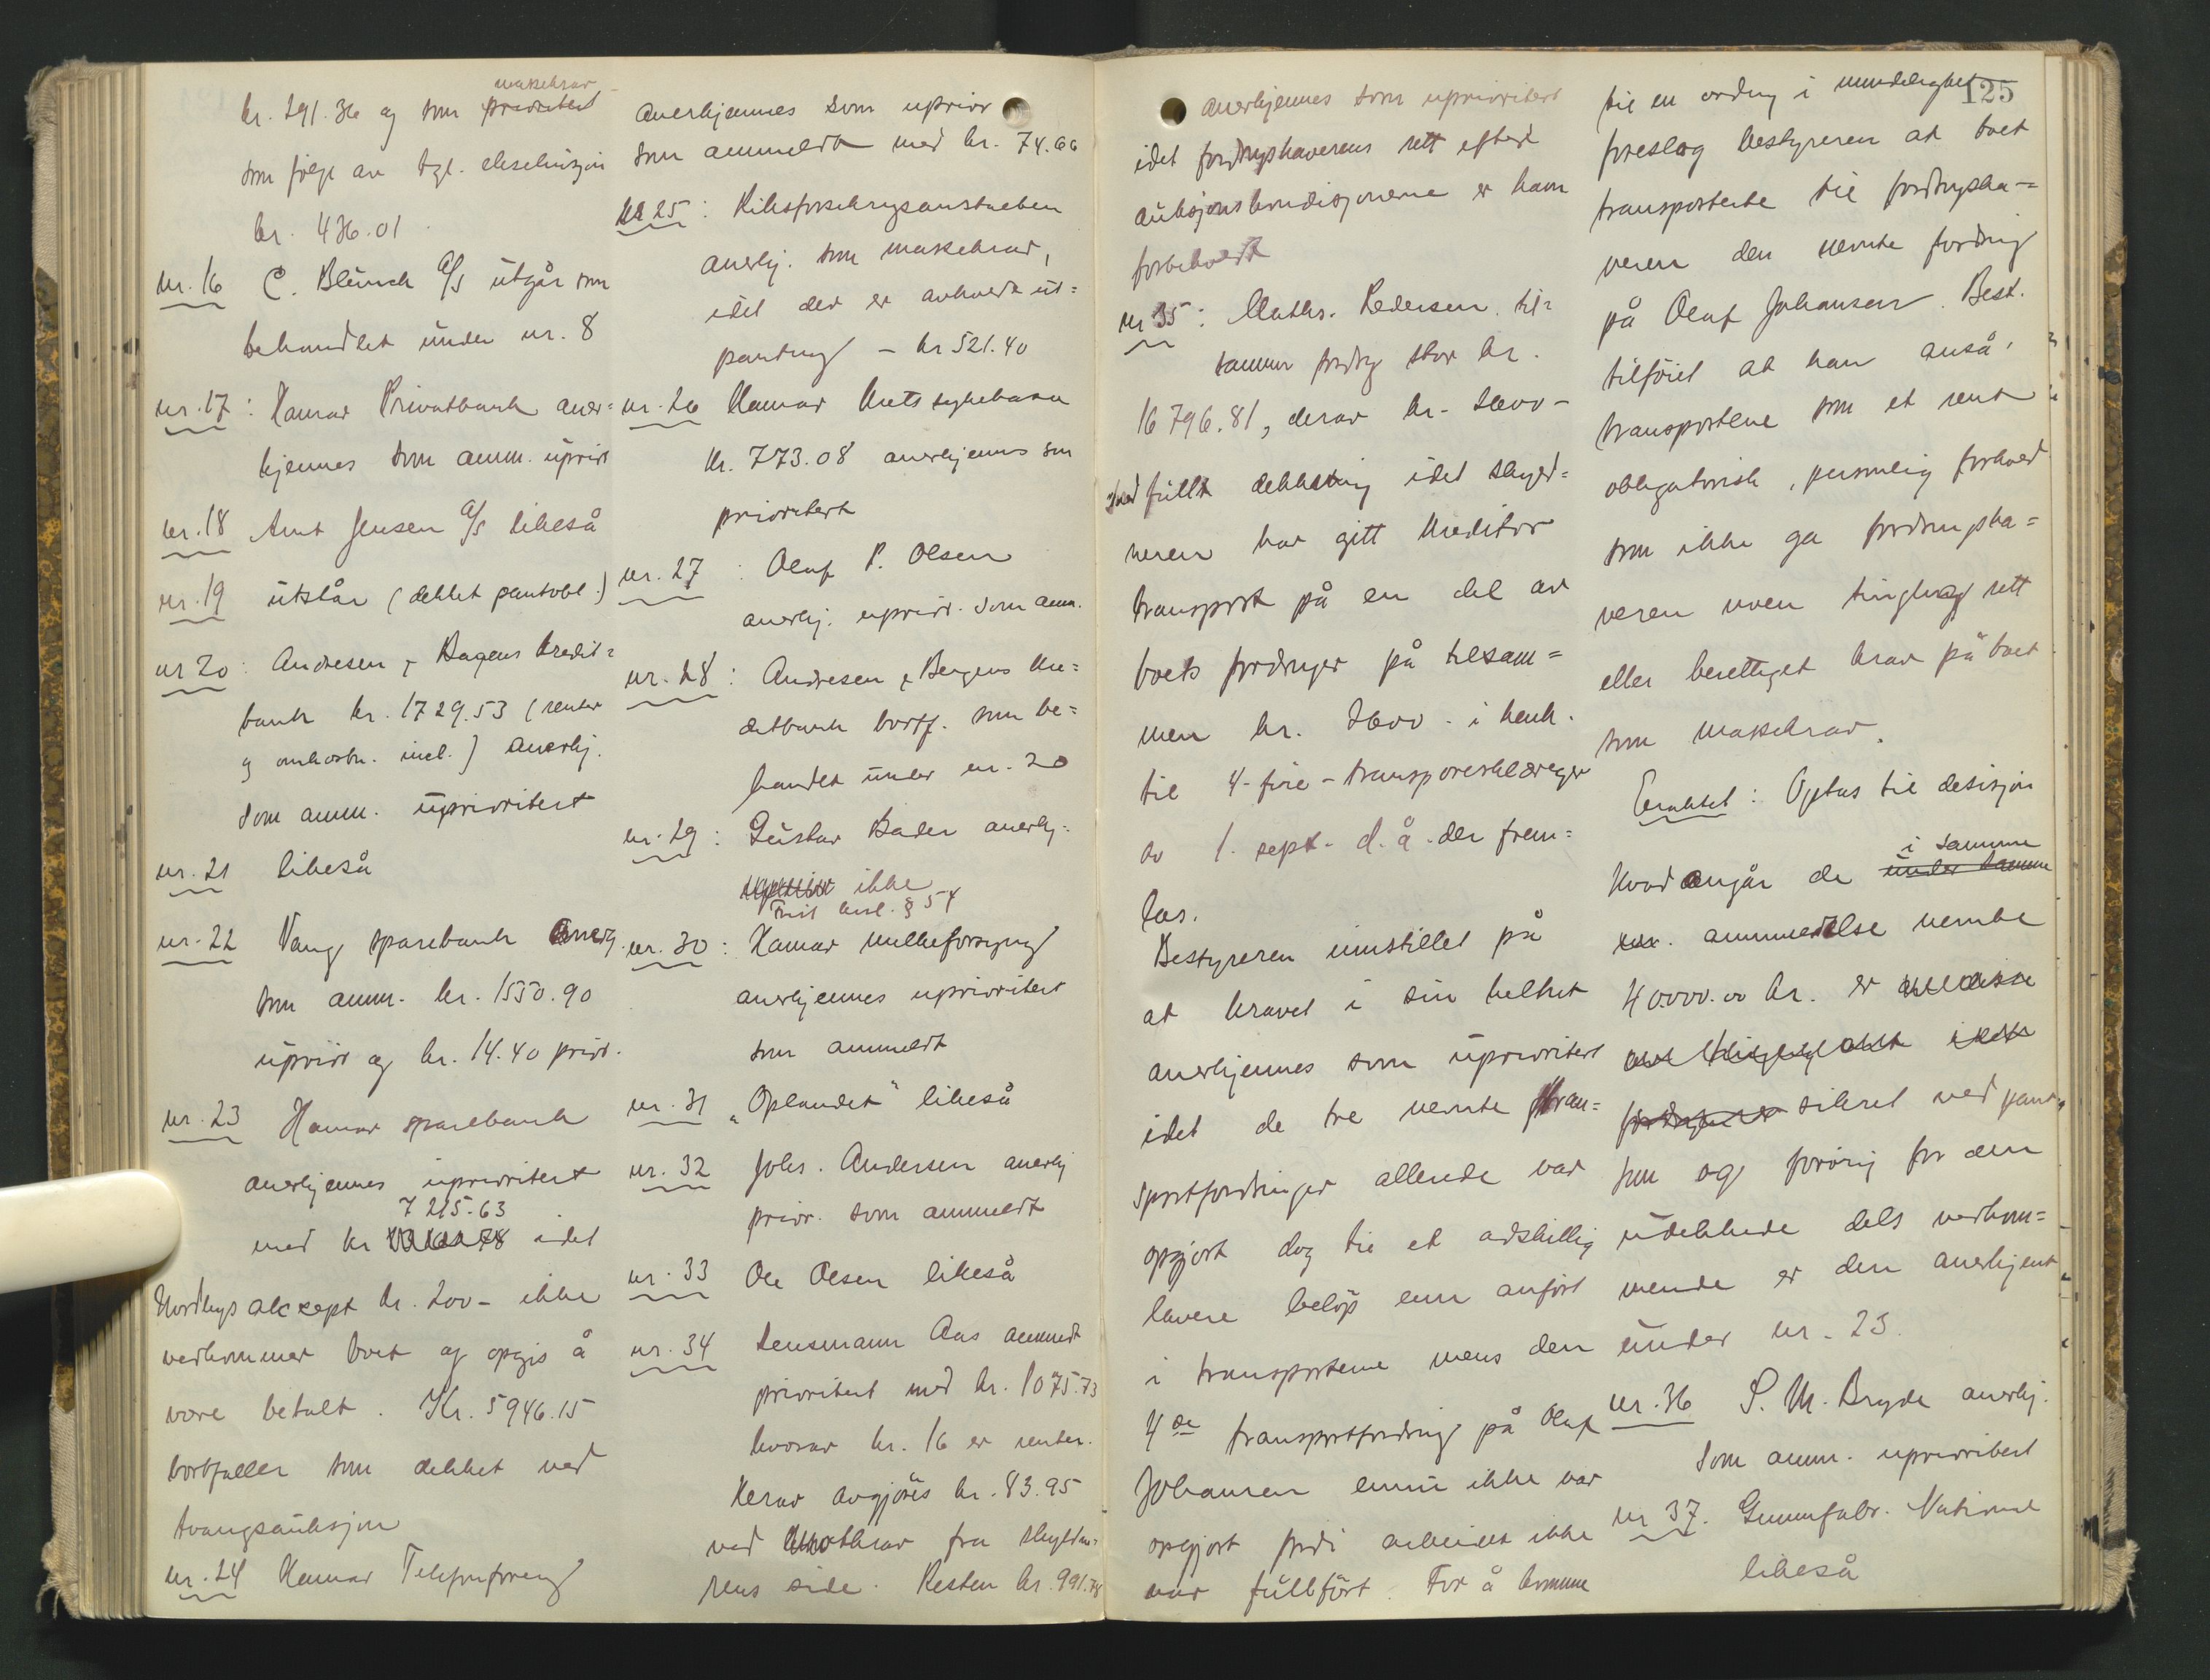 massekrav
kr. 291.36 og som prioritert
som følge av tgl. eksekusjon
kr. 436.01.
nr. 16 C. Blünch A/S utgår som
behandlet under nr. 8
nr. 17: Hamar Privatbank aner=
kjennes som anm. uprior
nr. 18 Arnt Jensen A/S likeså
nr. 19 utslår (dekket pantobl.)
nr 20: Andresen & Bergens Kredit=
bank kr. 1729.53 (renter
og omkostn. incl.) anerkj.
som anm. uprioritert
nr. 21 likeså
nr. 22 Vang sparebank anerkj.
som anm. kr. 1550.90
uprior og kr. 14.40 prior.
nr. 23 Hamar sparebank
anerkjennes uprioritert
7215.63
med kr idet
Nordbys aksept kr. 200- ikke
vedkommer boet og opgis å
være betalt. Kr. 5946.15
bortfaller som dekket ved
tvangsauksjon
nr. 24 Hamar Telefonforeng
anerkjennes som uprior
som anmeldt med kr. 74.66
nr 25: Riksforsikringsanstalten
anerkj. som massekrav,
idet der er avholdt ut=
pantning - kr 521.40
nr. 26 Hamar Krets sykekasse
kr. 773.08 anerkjennes som
prioritert
nr. 27: Oluf P. Olsen
anerkj. uprior. som anm.
nr. 28: Andresen & Bergens Kre=
ditbank bortf. som be=
handlet under nr. 20
nr. 29: Gustav Bader anerkj=
ikke
Frist kksl. § 54
nr. 30: Hamar melkeforsyning
anerkjennes uprioritert
som anmeldt
nr. 31 "Oplandet" likeså
nr. 32 Johs. Andersen anerkj
prior. som anmeldt
nr. 33 Ole Olsen likeså
nr. 34 Lensmann Aas anmeldt
prioritert med kr. 1075.73
hvorav kr. 16 er renter.
Herav avgjøres kr. 83.95
ved motkrav fra skyldne=
rens side. Resten kr. 991.78
125
anerkjennes som uprioritert
idet fordringshaverens rett efter
auksjonskondisjonene er ham
forbeholdt
nr 35: Maths. Pedersen til=
sammen fordrg stor kr.
16796.81, derav kr. 3600-
med fullt dekning idet skyld=
neren har gitt kreditor
transport på en del av
boets fordringer på tilsam=
men kr. 3600.- i henh.
til 4-fire-transporterklæringer
av 1. sept. d.å. der frem=
las.
Bestyreren innstillet på
at kravet i sin helhet
anerkjennes som uprioritert
idet de tre nevnte tran=
sportfordringer allerede var
opgjort dog til et adskillig
lavere beløp enn anført
i transportene mens den
4de transportfordring på Oluf
Johansen ennu ikke var
opgjort fordi arbeidet ikke
var fullført. For å komme
til en ordng i mindelighet
foreslog bestyreren at boet
transporterte til fordringsha=
veren den nevnte fordring
på Oluf Johansen. Best.
tilføiet at han anså
transportene som et rent
obligatorisk, personlig forhold
som ikke ga fordringsha=
veren noen tinglig rett
eller berettiget krav på boet
som massekrav.
Eraktet: Optas til desisjon
i samme
Hvad angår de under samme
nr. anmeldelse nevnte
40000.00 kr. er
sikret ved pant,
som og forøvrig for den
udekkede dels vedkom=
mende er den anerkjent
under nr. 23.
nr. 36 S. M. Bryde anerkj.
som anm. uprioritert
nr 37. Gummifabr. National
likeså